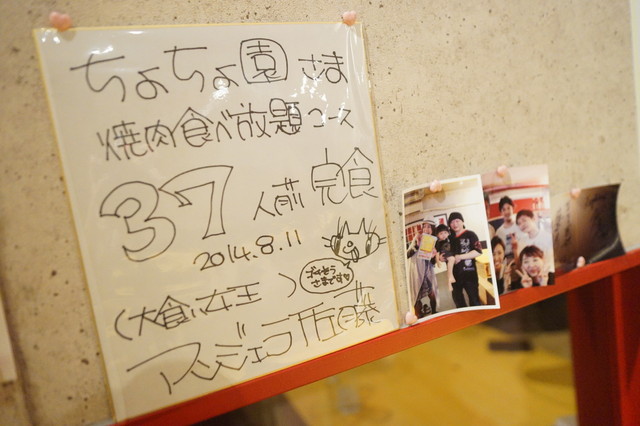 ちょちょ園さま
焼肉食べ放題コース
37人前完食
2014.8.11
ごちそう
さまです
(大食い女王)
アンジェラ佐藤